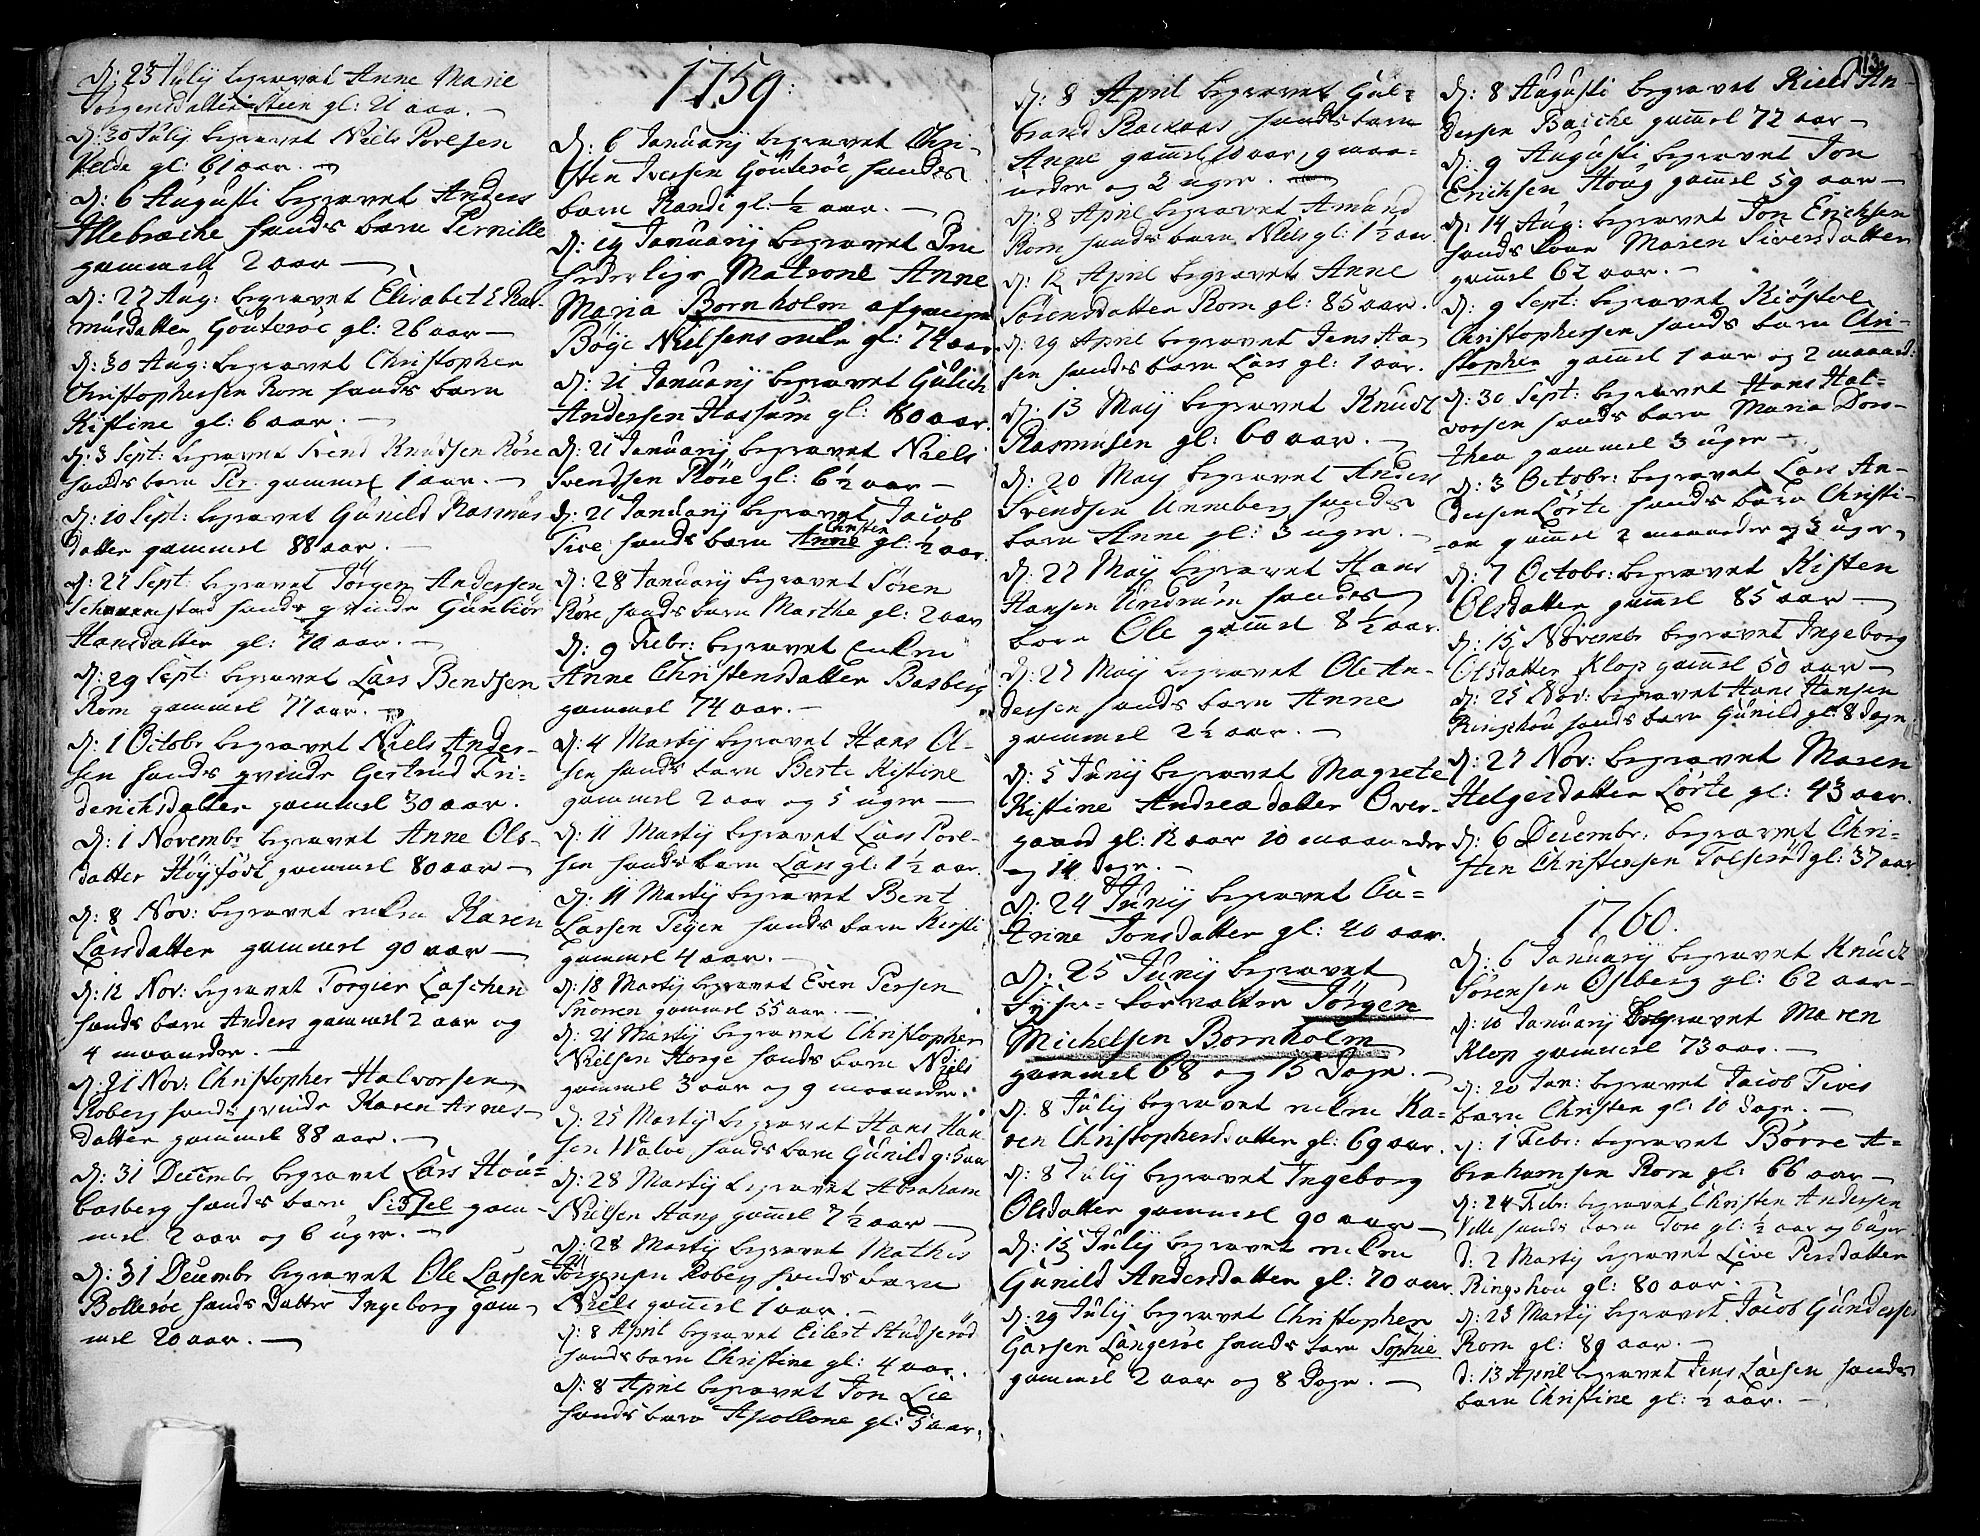 D: 23 Julij begravet Anne Marie
Jorgensdatter Steen gl: 21 aar.
D: 30 Julij begravet Niels Povelsen
gl: 61 aar.
D: 6 Augusti begravet Anders
Illebræche hands barn Pernille
gammell 2 aar
D: 27 Aug: begravet Elisabet Ras-
musdatter Gouterøe gl: 26 aar
D: 30 Aug: begravet Christopher
Christophersen Rom hands barn
Kistine gl: 6 aar.
D: 3 Sept: begravet Svend Knudsen Røre
hands barn Per. gammel 1 aar.
D: 10 Sept: begravet Gunild Rasmus
datter gammel 88 aar.
D: 27 Sept: begravet Jörgen Andersen
hands qvinde Gunbiör
Hansdatter gl: 70 aar.
D: 29 Sept: begravet Lars Bendsen
Rom gammel 77 aar.
D: 1 Octobr begravet Niels Ander-
sen hands qvinde Gertrud Fri-
derichsdatter gammel 30 aar.
D: 1 Novembr begravet Anne Ols-
datter Höyfödt gammel 80 aar
D: 8 Nov: begravet enken Karen
Larsdatter gammel 90 aar
D: 12 Nov: begravet Torgier Laschen
hands barn Anders gammel 2 aar og
4 maaneder.
D: 21 Nov: Christopher Halvorsen
Roberg hands qvinde Karen Arnes-
datter gammel 88 aar.
D: 31 Decembr begravet Lars Hou-
basberg hands barn Sissel gam-
mel 2 aar og 6 uger.
D: 31 Decembr begravet Ole Larsen
Bollerøe hands Datter Ingeborg gam-
mel 20 aar.
1759:
D: 6 Januarij begravet Chri-
sten Iversen Gouterøe hands
barn Randi gl: ½ aar.
D: 19 Januarij begravet Den
hederlige Matrone Anne
Maria Bornholm afgangne
Böye Nielsens enke gl: 74 aar
D: 21 Januarij begravet Gulich
Andersen Hassum gl: 80 aar.
D: 21 Januarij begravet Niels
Svendsen Röre gl: 6½ aar
D: 21 Januarij begravet Jacob
Christen
Tive hands barn Anne gl: ½ aar.
D: 28 Januarij begravet Sören
Röre hands barn Marthe gl: 2 aar
D: 9 Febr: begravet Enken
Anne Christensdatter Basberg
gammel 74 aar.
D: 4 Martij begravet Hans Ol-
sen hands barn Berte Kistine
gammel 2 aar og 5 uger
D: 11 Martij begravet Lars Povel-
sen hands barn Lars gl: 1½ aar.
D: 11 Martij begravet Bent
Larsen Teÿen hands barn Kirsti
gammel 4 aar.
D: 18 Martij begravet Even Persen
Snoren gammel 55 aar.
D: 21 Martij begravet Christopher
Nielsen Horge hands barn Niels
gammel 3 aar og 9 maaneder.
D: 25 Martij begravet Hans Han-
sen Walöe hands barn Gunild
D: 28 Martij begravet Abraham
Nielsen Haug gammel 7½ aar
D: 28 Martij begravet Mathis
Jörgensen Roberg hands barn
Niels gammel 1 aar.
D: 8 April begravet Eilert Studsröd
hands barn Christine gl: 4 aar.
D: 8 April begravet Jon Lie
hands barn Apollone gl: 5 aar.
113.
D: 8 April begravet Gul-
brand Rackaas hands barn
Anne gammel 10 aar, 9 maa-
neder og 2 uger.
D: 8 April begravet Amund
Rom hands barn Niels gl: 1½ aar.
D: 12 April begravet Anne
Sörensdatter Rom gl: 85 aar.
D: 29 April begravet Jens Han-
sen hands barn Lars gl: 1 aar.
D: 13 Maij begravet Knud
Rasmusen gl: 60 aar.
D: 20 Maij begravet Anders
Svendsen Unneberg hands
barn Anne gl: 3 uger.
D: 27 Maij begravet Hans
Hansen Undrum hands
barn Ole gammel 8½ aar.
D: 27 Maij begravet Ole An-
dersen hands barn Anne
gammel 2½ aar.
D: 5 Junij begravet Magrete
Kistine Andreædatter Over-
gaard gl: 12 aar 10 maaneder
og 14 Dage.
D: 24 Junij begravet Ca-
trine Jonsdatter gl: 20 aar.
D: 25 Junij begravet
Fyhr-forvalter Jörgen
Michelsen Bornholm
gammel 68 og 15 Dage.
D: 8 Julij begravet enken Ka-
ren Christophersdatter gl: 69 aar.
D: 8 Julij begravet Ingeborg
Olsdatter gammel 90 aar
D: 15 Julij begravet enken
Gunild Andersdatter gl: 70 aar.
D: 29 Julij begravet Christopher
Larsen Langerøe hands barn Sophie
gammel 2 aar og 8 Dage.
D: 8 Augusti begravet Kield An-
dersen Basche gammel 72 aar
D: 9 Augusti begravet Jon
Erichsen Houg gammel 59 aar
D: 14 Aug: begravet Jon Erichsen
hands kone Maren Siversdatter
gammel 62 aar.
D: 9 Sept: begravet Kiöstel
Christophersen hands barn Chri-
stopher gammel 1 aar og 2 maaned:
D: 30 Sept: begravet Hans Hal-
vorsen hands barn Maria Doro-
thea gammel 3 uger
D: 3 Octobr: begravet Lars An-
dersen Lörte hands barn Christi-
an gammel 2 maaneder og 3 uger
D: 7 Octobr: begravet Kisten
Olsdatter gammel 85 aar
D: 15 Novembr begravet Ingeborg
Olsdatter Klop gammel 50 aar
D: 25 Nov: begravet Hans Hansen
Ringshou hands barn Gunild gl: 8 dage
D: 27 Nov: begravet Maren
Helgesdatter Lörte gl: 43 aar.
D: 6 Decembr: begravet Chri-
sten Christensen Tolsrød gl: 37 aar
1760.
D: 6 Januarij begravet Knud
Sörensen Oslberg gl: 62 aar
D: 10 Januarij begravet Maren
Klop gammel 73 aar.
D: 20 Jan: begravet Jacob Tives
barn Christen gl: 10 dage.
D: 1 Febr: begravet Börre A-
brahamsen Rom gl: 66 aar
D: 24 Febr: begravet Christen Andersen
Velle hands barn Tore gl: ½ aar og 6 uger
D: 2 Martij begravet Live Persdatter
Ringshou gl: 80 aar.
D: 23 Martij begravet Jacob Gundersen
Rom gl: 89 aar.
D: 13 April begravet Jens Larsen hands
barn Christine gl: ½ aar.